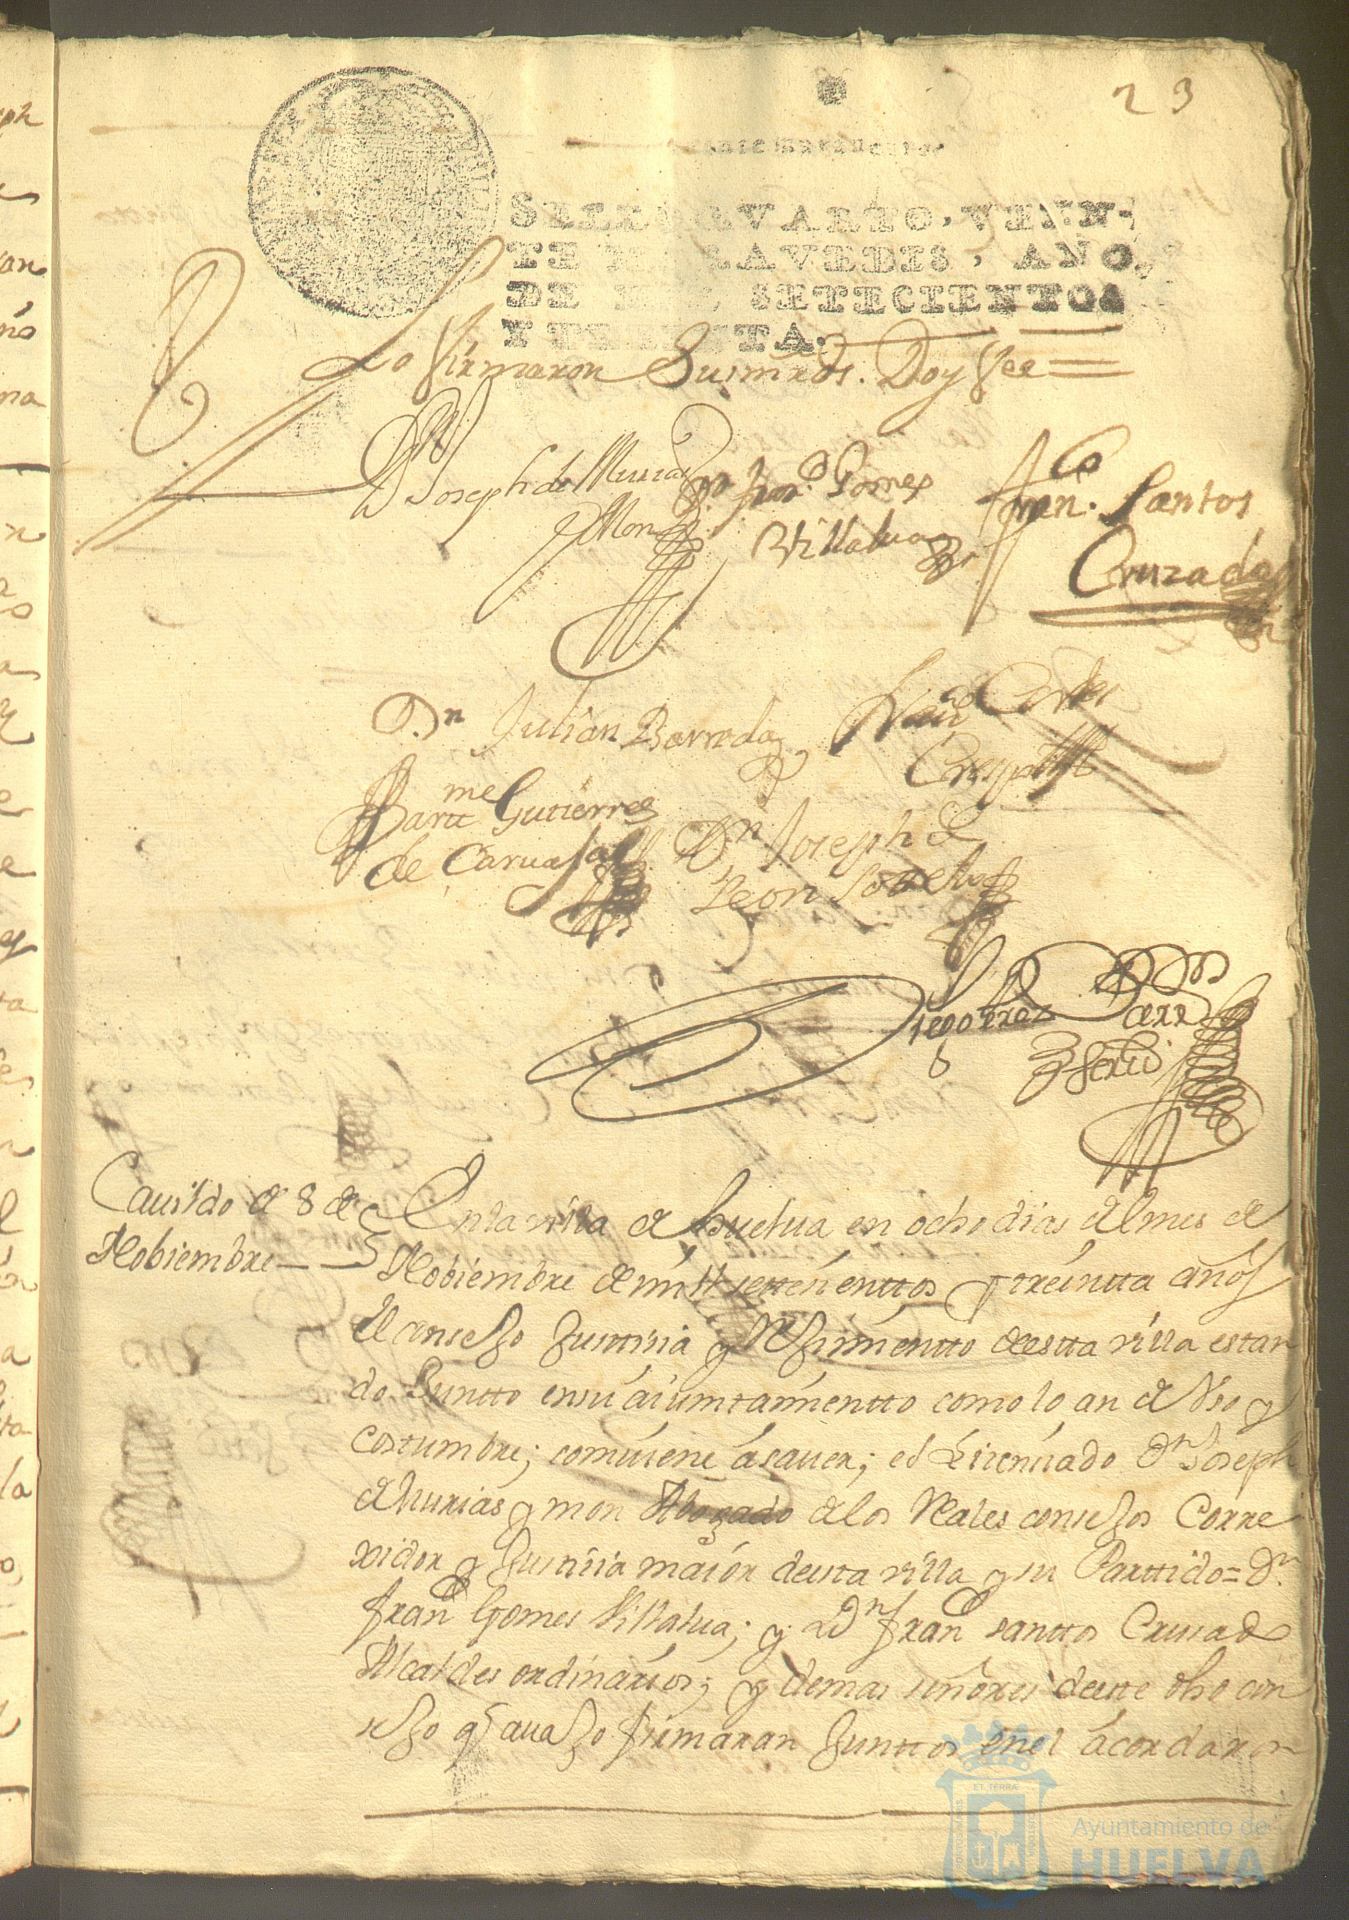 23
SELLO QVARTO, VEIN-
TE MARAVEDIS, AÑO
DE MIL, SETECIENTOS
Y TREINTA.
Lo firmaron Susmrds. Doy fee
Dn Joseph de Murias
y Mon
Dn franco Gomes
Villalua
Franco Santos
Cruzado
Dn Julian Barreda
Franco Cortes
Crespo
Barttme Gutierres
de Carvajal
Dn Joseph de
Leon
Diego Prez
Cavildo de 8 de
Nobiembre
En la villa de huelua en ocho dias del mes de
Nobiembre de mill settesienttos y treintta años
El consejo Justtisia y Rejimientto de estta villa estan
do Juntto en su aiumtamientto como lo an de Vso y
costumbre; comuiene a sauer; el Lisensiado Dn Joseph
de Murias y mon Abogado de los Reales consejos Corre
xidor y Justtisia maior de esta villa y su Parttido = Dn
franco Gomes Villalua; y Dn franco santtos Crusado
Alcaldes ordinarios; y demas señores de este dho con
sejo q auajo firmaran Junttos en el acordaron
Ayuntamiento de
HUELVA